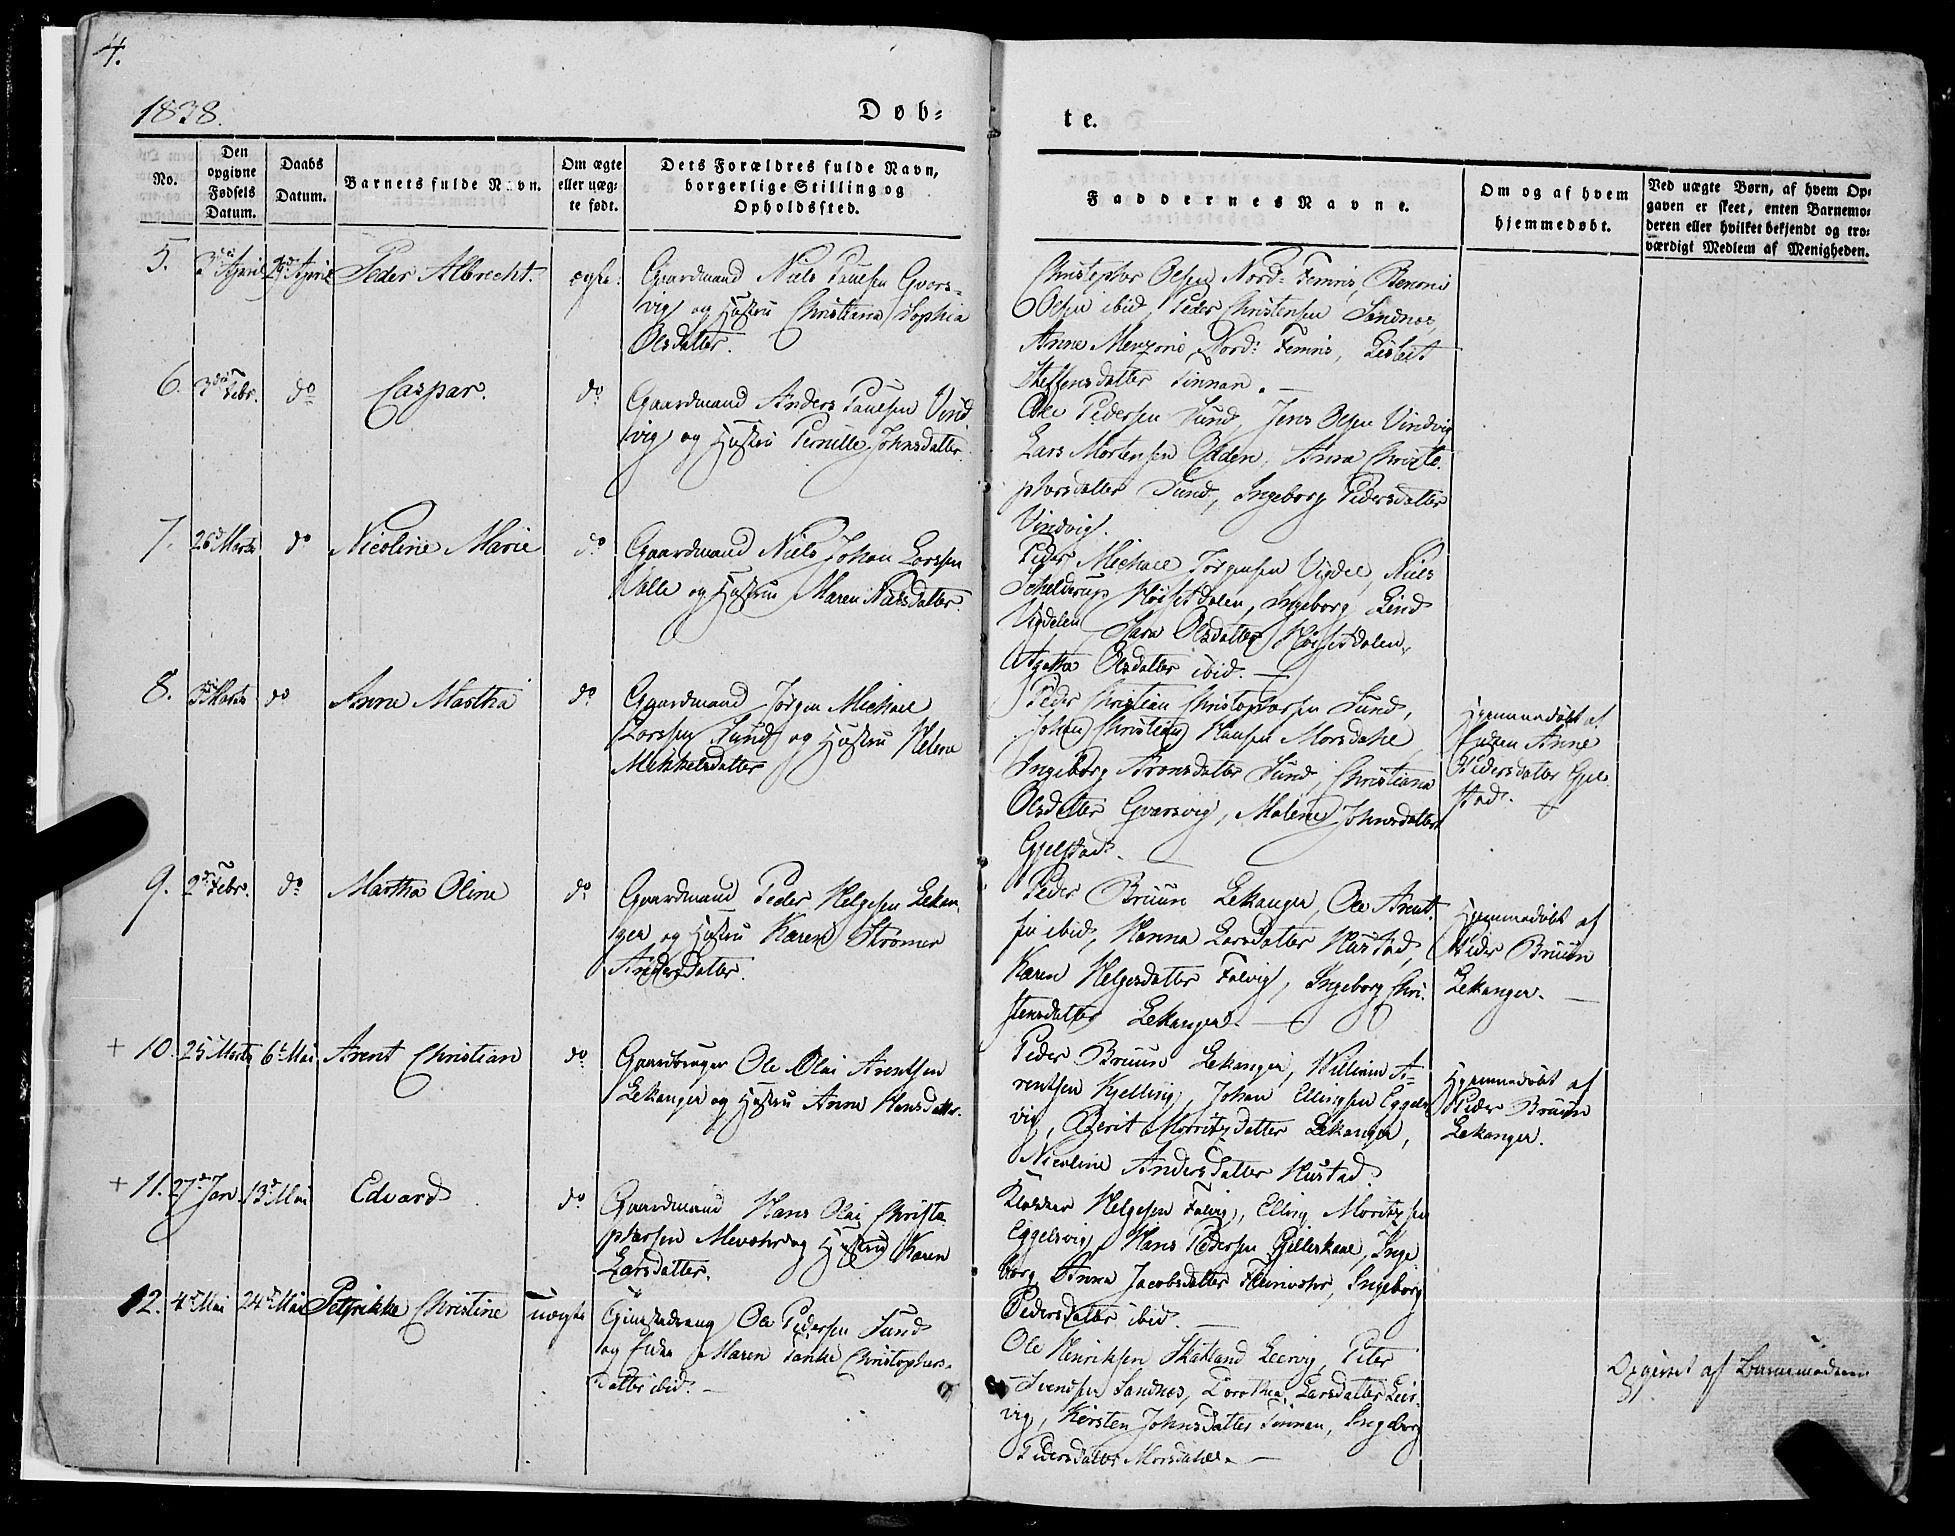 4.
1838.
Døb-
te.
No.
Den opgivne Fødsels Datum.
Daabs Datum.
Barnets fulde Navn.
Om ægte eller uæg- te født.
Dets Forældres fulde Navn, borgerlige Stilling og Opholdssted.
Faddernes Navne.
Om og af hvem hjemmedøbt.
Ved uægte Børn, af hvem Op- gaven er skeet, enten Barnemo- deren eller hvilket bekjendt og tro- værdigt Medlem af Menigheden.
5. 3die April April Peder Albrecht. ægte.
Gaardmand Niels Paulsen Gvors-
vig og Hustru Christiana Sophia
Olsdatter.
Christopher Olsen Nord- Femris, Benoni
Olsen ibid, Peder Christensen Sandnes,
Anne Menzoni Nord- Femris,
Steffensdatter Finnan.
6. 3die Febr. do Caspar. do
Gaardmand Anders Paulsen Vind
vig og Hustru Pernille Johnsdatter.
Ole Pedersen Sund, Jens Olsen Vindvig
Lars Mortensen Odden, Anna Christo
phersdatter Sund, Ingeborg Pedersdatter
Vindvig.
7. 26d Marts do Nicoline Marie do
Gaardmand Niels Johan Larssen
Valle og Hustrue Maren Nielsdatter.
Peder Michael Jørgensen Vigdel, Niels
Schelderup Høisetdalen, Ingeborg Lind
Vigdelen Sara Olsdatter Høisetdalen,
Agatha Olsdatter ibid. —
8. Marts do Anne Martha do
Gaardmand Jørgen Michael
Larssen Sund og Hustru Helena
Mekkelsdatter
Peder Christian Christophersen Sund,
Johan Christian Hansen Morsdahl
Ingeborg Aronsdatter Sund, Christiana
Olsdatter Gvarsvig, Malene Johnsdatter
Gjelstad.
Hjemmedøbt af
Enken Anne
Pedersdatter Gjel
stad.
9. 2d Febr. do Martha Oline do
Gaardmand Peder Helgesen Lekan-
ger og Hustru Karen Strømer
Andersdatter.
Peder Bruun Lekanger, Ole Arent-
sen ibid, Hanna Larsdatter Hustad,
Karen Helgesdatter Falvig, Ingeborg Chri-
stensdatter Lekanger. —
Hjemmedøbt af
Peder Bruun
Lekanger. —
+ 10. 25 Marts 6t Mai Arent Christian do
Gaardbruger Ole Olai Arentsen
Lekanger og Hustru Anne Hansdatter.
Peder Bruun Lekanger, Willum A-
rentsen Kjelling, Johan Ellingsen Eggels
vig, Berit Moritzdatter Lekanger,
Nicoline Andersdatter Hustad.
Hjemmedøbt af
Peder Bruun
Lekanger.
+ 11. 27d Jan. 13d Mai Edvard do
Gaardmand Hans Olai Christo
phersen Mevær og Hustrue Karen
Larsdatter.
Helgesen Falvig, Elling Moritzsen
Eggelsvig, Hans Pedersen Gilleskaal, Inge
borg Anna Jacobsdatter Fleinvær, Ingeborg
Pedersdatter ibid. —
12. 4d Mai 24d Mai Petrikke Christine uægte
Ole Pedersen Sund
og Maren Tanke Christophers-
datter ibid. —
Ole Henriksen Skatland Leervig, Peter
Svendsen Sandnes, Dorothea Larsdatter Leir-
vig, Kersten Johnsdatter Finnan, Ingeborg
Pedersdatter Morsdahl. —
Opgivet af Barnemoderen